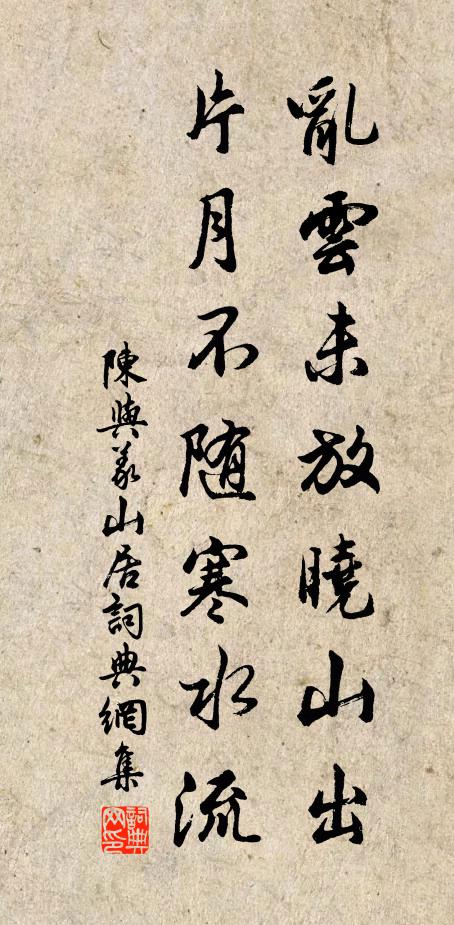 亂雲未放曉山出
片月不随寒水流
陳與義山居詞典網集
詞典网印